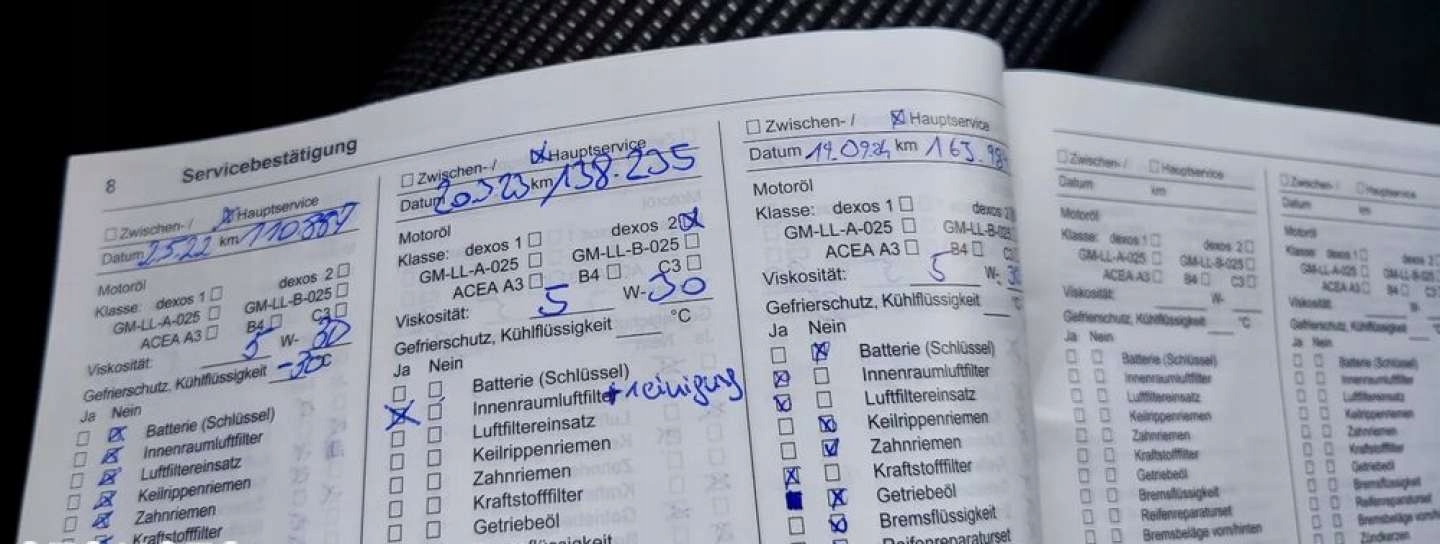 8 Servicebestätigung
Zwischen- / Hauptservice
Datum 2.5.22 km 110.887
Motoröl
Klasse: dexos 1 dexos 2
GM-LL-A-025 GM-LL-B-025
ACEA A3 B4 C3
Viskosität: 5 W- 30
Gefrierschutz, Kühlflüssigkeit -30°C
Ja Nein
Batterie (Schlüssel)
Innenraumluftfilter
Luftfiltereinsatz
Keilrippenriemen
Zahnriemen
Kraftstofffilter
Zwischen- / Hauptservice
Datum 20.3.23 km 138.235
Motoröl
Klasse: dexos 1 dexos 2
GM-LL-A-025 GM-LL-B-025
ACEA A3 B4 C3
Viskosität: 5 W-30
Gefrierschutz, Kühlflüssigkeit °C
Ja Nein
Batterie (Schlüssel)
Innenraumluftfilter + reinigung
Luftfiltereinsatz
Keilrippenriemen
Zahnriemen
Kraftstofffilter
Getriebeöl
Zwischen- / Hauptservice
Datum 19.09.24 km 163.984
Motoröl
Klasse: dexos 1 dexos 2
GM-LL-A-025 GM-LL-B-025
ACEA A3 B4 C3
Viskosität: 5 W- 30
Gefrierschutz, Kühlflüssigkeit °C
Ja Nein
Batterie (Schlüssel)
Innenraumluftfilter
Luftfiltereinsatz
Keilrippenriemen
Zahnriemen
Kraftstofffilter
Getriebeöl
Bremsflüssigkeit
Reifenreparaturset
Zwischen- / Hauptservice
Datum km
Motoröl
Klasse: dexos 1 dexos 2
GM-LL-A-025 GM-LL-B-025
ACEA A3 B4 C3
Viskosität: W-
Gefrierschutz, Kühlflüssigkeit °C
Ja Nein
Batterie (Schlüssel)
Innenraumluftfilter
Luftfiltereinsatz
Keilrippenriemen
Zahnriemen
Kraftstofffilter
Getriebeöl
Bremsflüssigkeit
Reifenreparaturset
Bremsbeläge vorn/hinten
Zwischen- / Hauptservice
Datum km
Motoröl
Klasse: dexos 1 dexos 2
GM-LL-A-025
ACEA A3 B4 C3
Viskosität: W-
Gefrierschutz, Kühlflüssigkeit
Ja Nein
Batterie (Schlüssel)
Innenraumluftfilter
Luftfiltereinsatz
Keilrippenriemen
Zahnriemen
Kraftstofffilter
Getriebeöl
Bremsflüssigkeit
Reifenreparaturset
Bremsbeläge
Zündkerzen